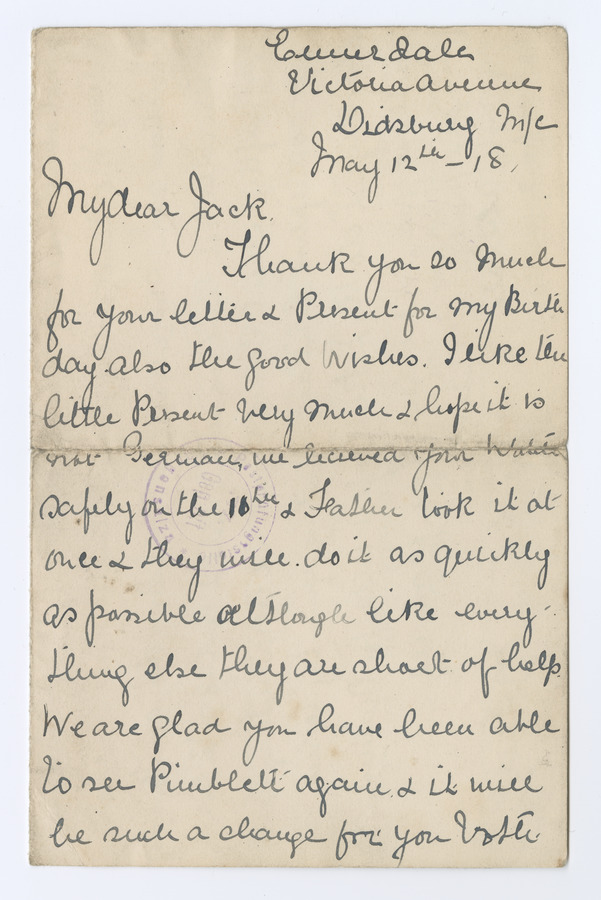 Ennerdale
Victoria Avenue
Didsbury M/c
May 12th - 18.
My dear Jack.
Thank you so much
for your letter & Present for my Birth
day also the good wishes. I like the
little Present very much & hope it is
not German, we received your Watch
safely on the 10th & Father took it at
once & they will do it as quickly
as possible although like every-
thing else they are short of help.
We are glad you have been able
to see Pimblett again & it will
be such a change for you both.